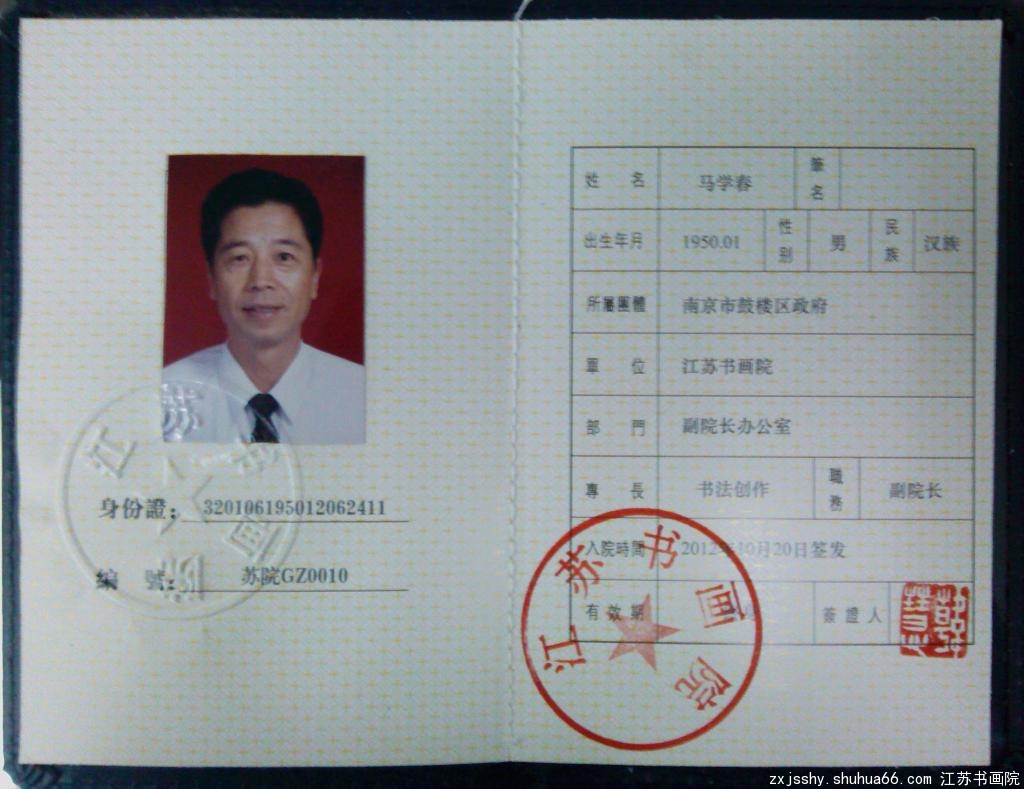 身份證： 320106195012062411
編 號： 苏院GZ0010
江苏书画院
姓 名 马学春 筆名
出生年月 1950.01 性别 男 民族 汉族
所屬團體 南京市鼓楼区政府
單 位 江苏书画院
部 門 副院长办公室
專 長 书法创作 職務 副院长
入院時間 2012年10月20日签发
有效期 簽證人
江苏书画院
zxjsshy.shuhua66.com 江苏书画院